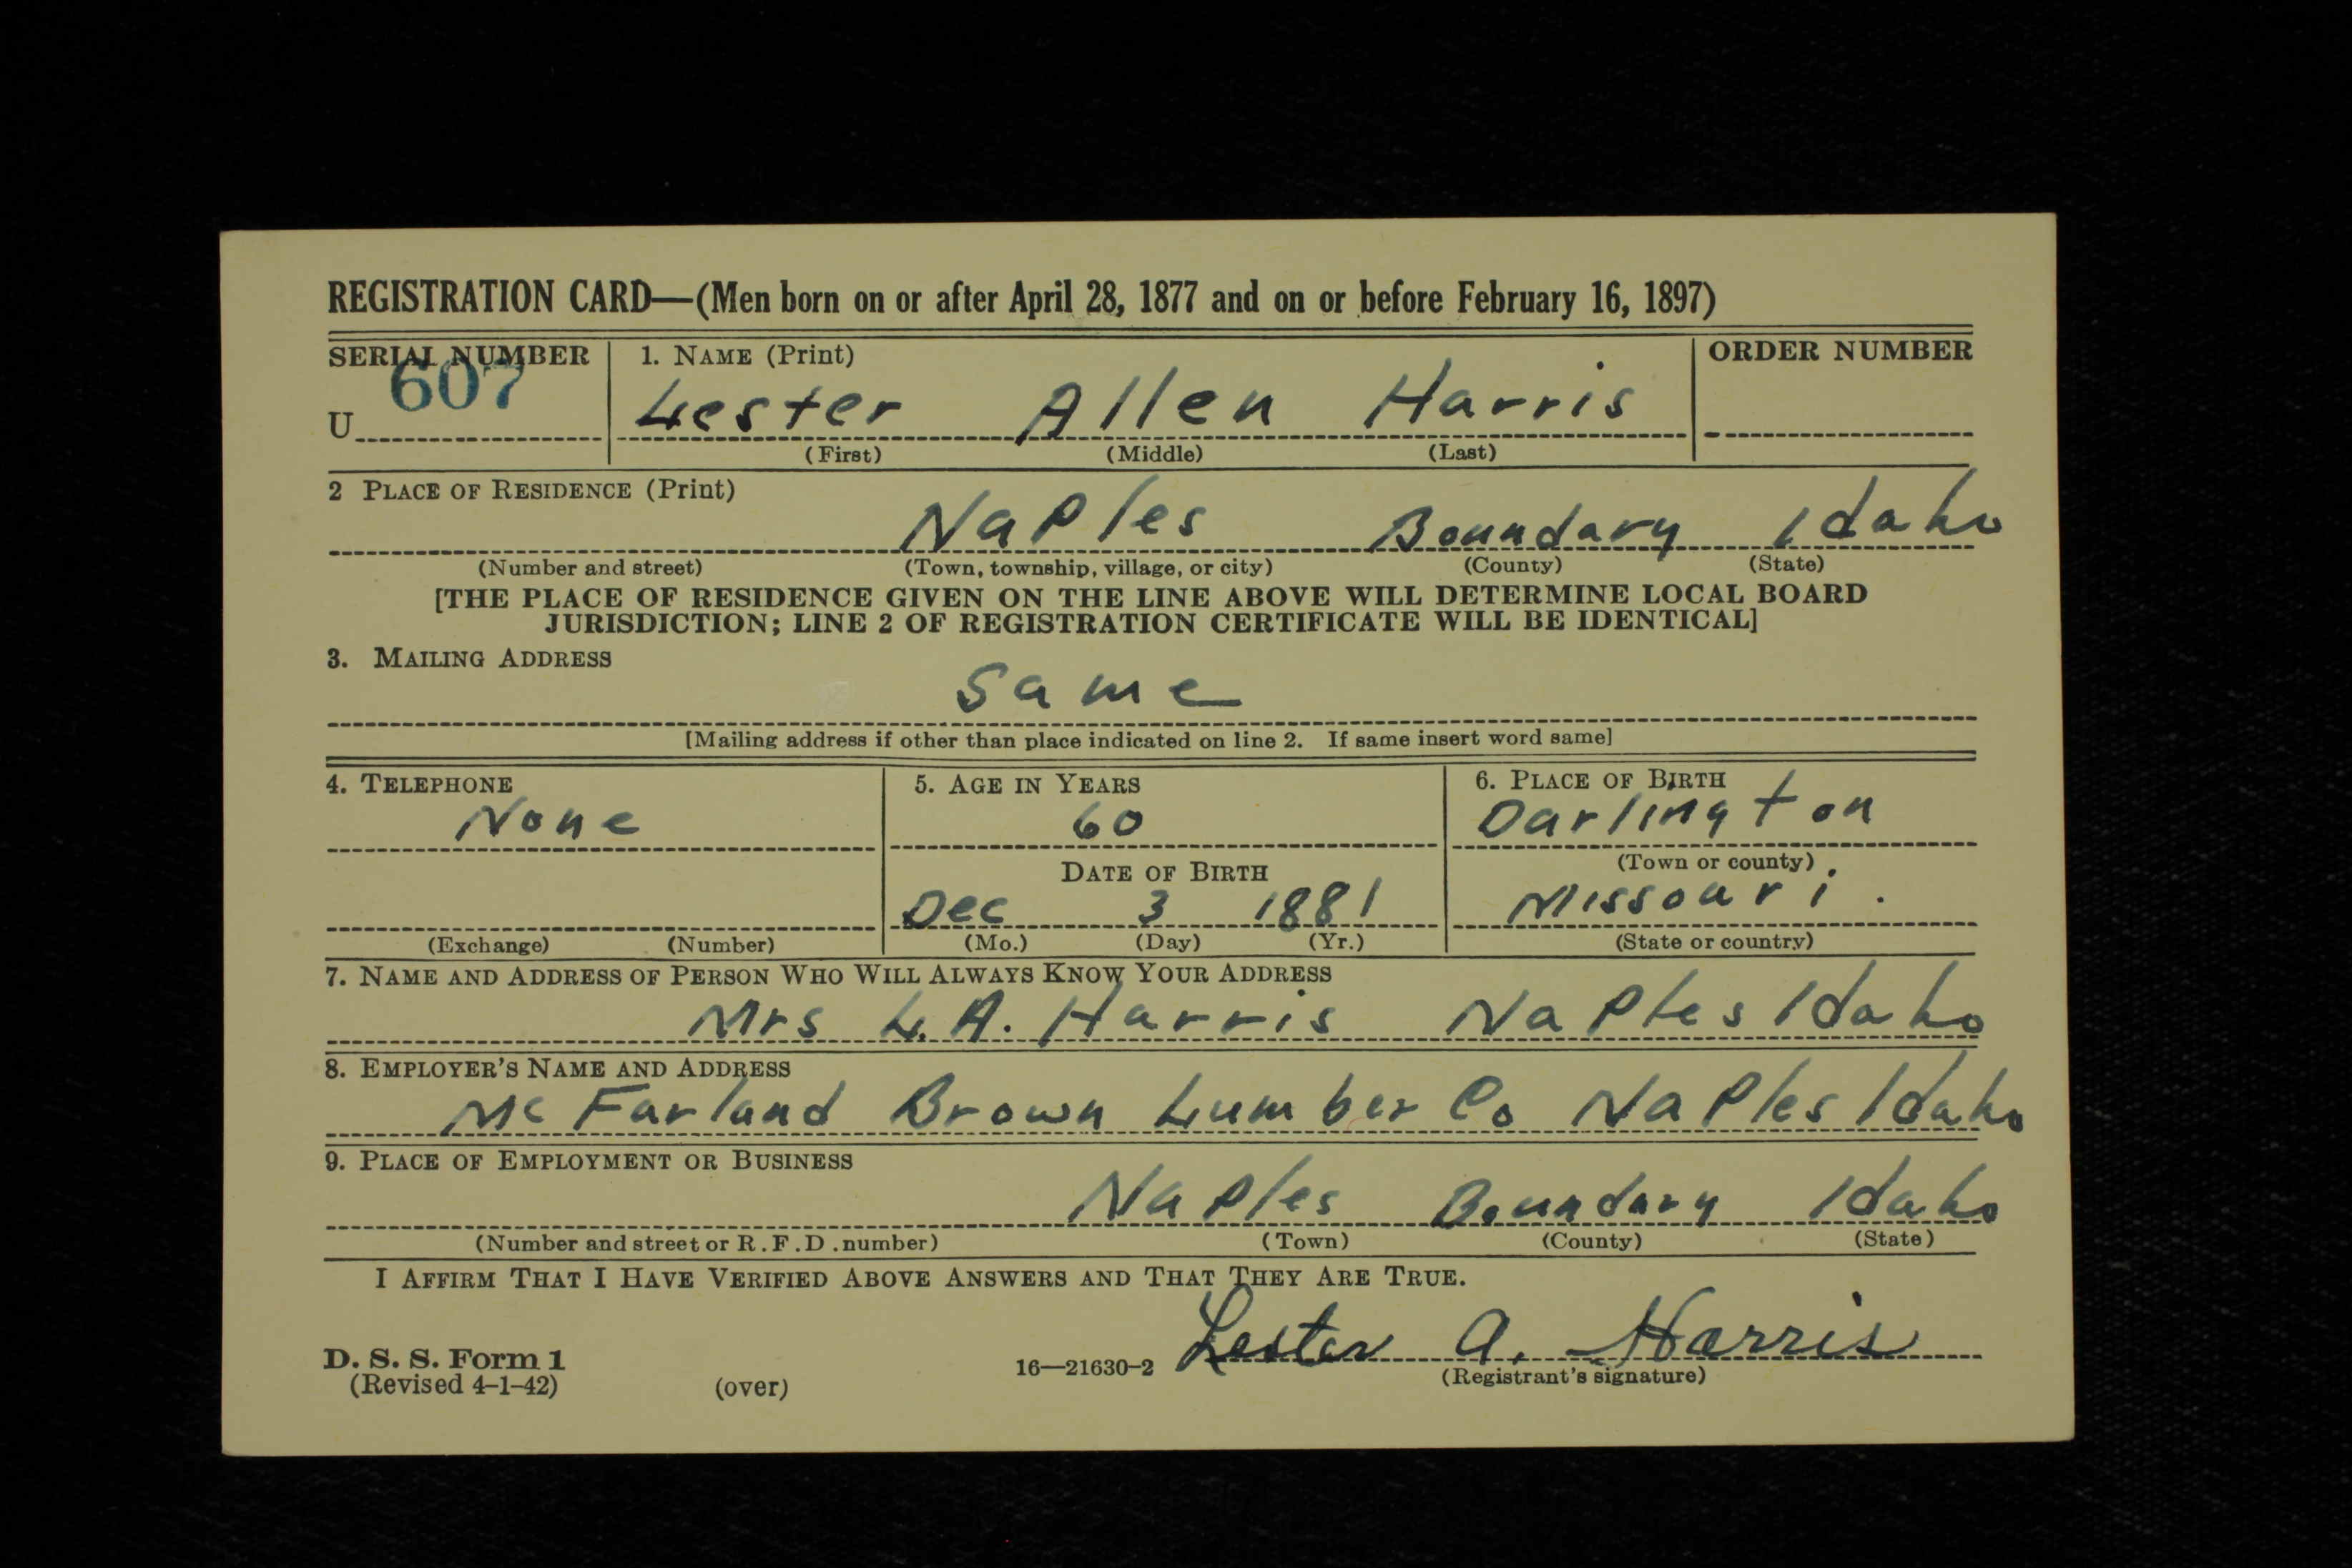 REGISTRATION CARD—(Men born on or after April 28, 1877 and on or before February 16, 1897)
SERIAL NUMBER 1. NAME (Print) ORDER NUMBER
607
U Lester Allen Harris
(First) (Middle) (Last)
2 PLACE OF RESIDENCE (Print)
Naples Boundary Idaho
(Number and street) (Town, township, village, or city) (County) (State)
[THE PLACE OF RESIDENCE GIVEN ON THE LINE ABOVE WILL DETERMINE LOCAL BOARD
JURISDICTION; LINE 2 OF REGISTRATION CERTIFICATE WILL BE IDENTICAL]
3. MAILING ADDRESS
Same
[Mailing address if other than place indicated on line 2. If same insert word same]
4. TELEPHONE 5. AGE IN YEARS 6. PLACE OF BIRTH
None 60 Darlington
DATE OF BIRTH (Town or county)
Dec 3 1881 Missouri.
(Exchange) (Number) (Mo.) (Day) (Yr.) (State or country)
7. NAME AND ADDRESS OF PERSON WHO WILL ALWAYS KNOW YOUR ADDRESS
Mrs L.A. Harris Naples Idaho
8. EMPLOYER'S NAME AND ADDRESS
Mc Farland Brown Lumber Co Naples Idaho
9. PLACE OF EMPLOYMENT OR BUSINESS
Naples Boundary Idaho
(Number and street or R.F.D. number) (Town) (County) (State)
I AFFIRM THAT I HAVE VERIFIED ABOVE ANSWERS AND THAT THEY ARE TRUE.
Lester A. Harris
D. S. S. Form 1 16—21630-2 (Registrant's signature)
(Revised 4-1-42) (over)